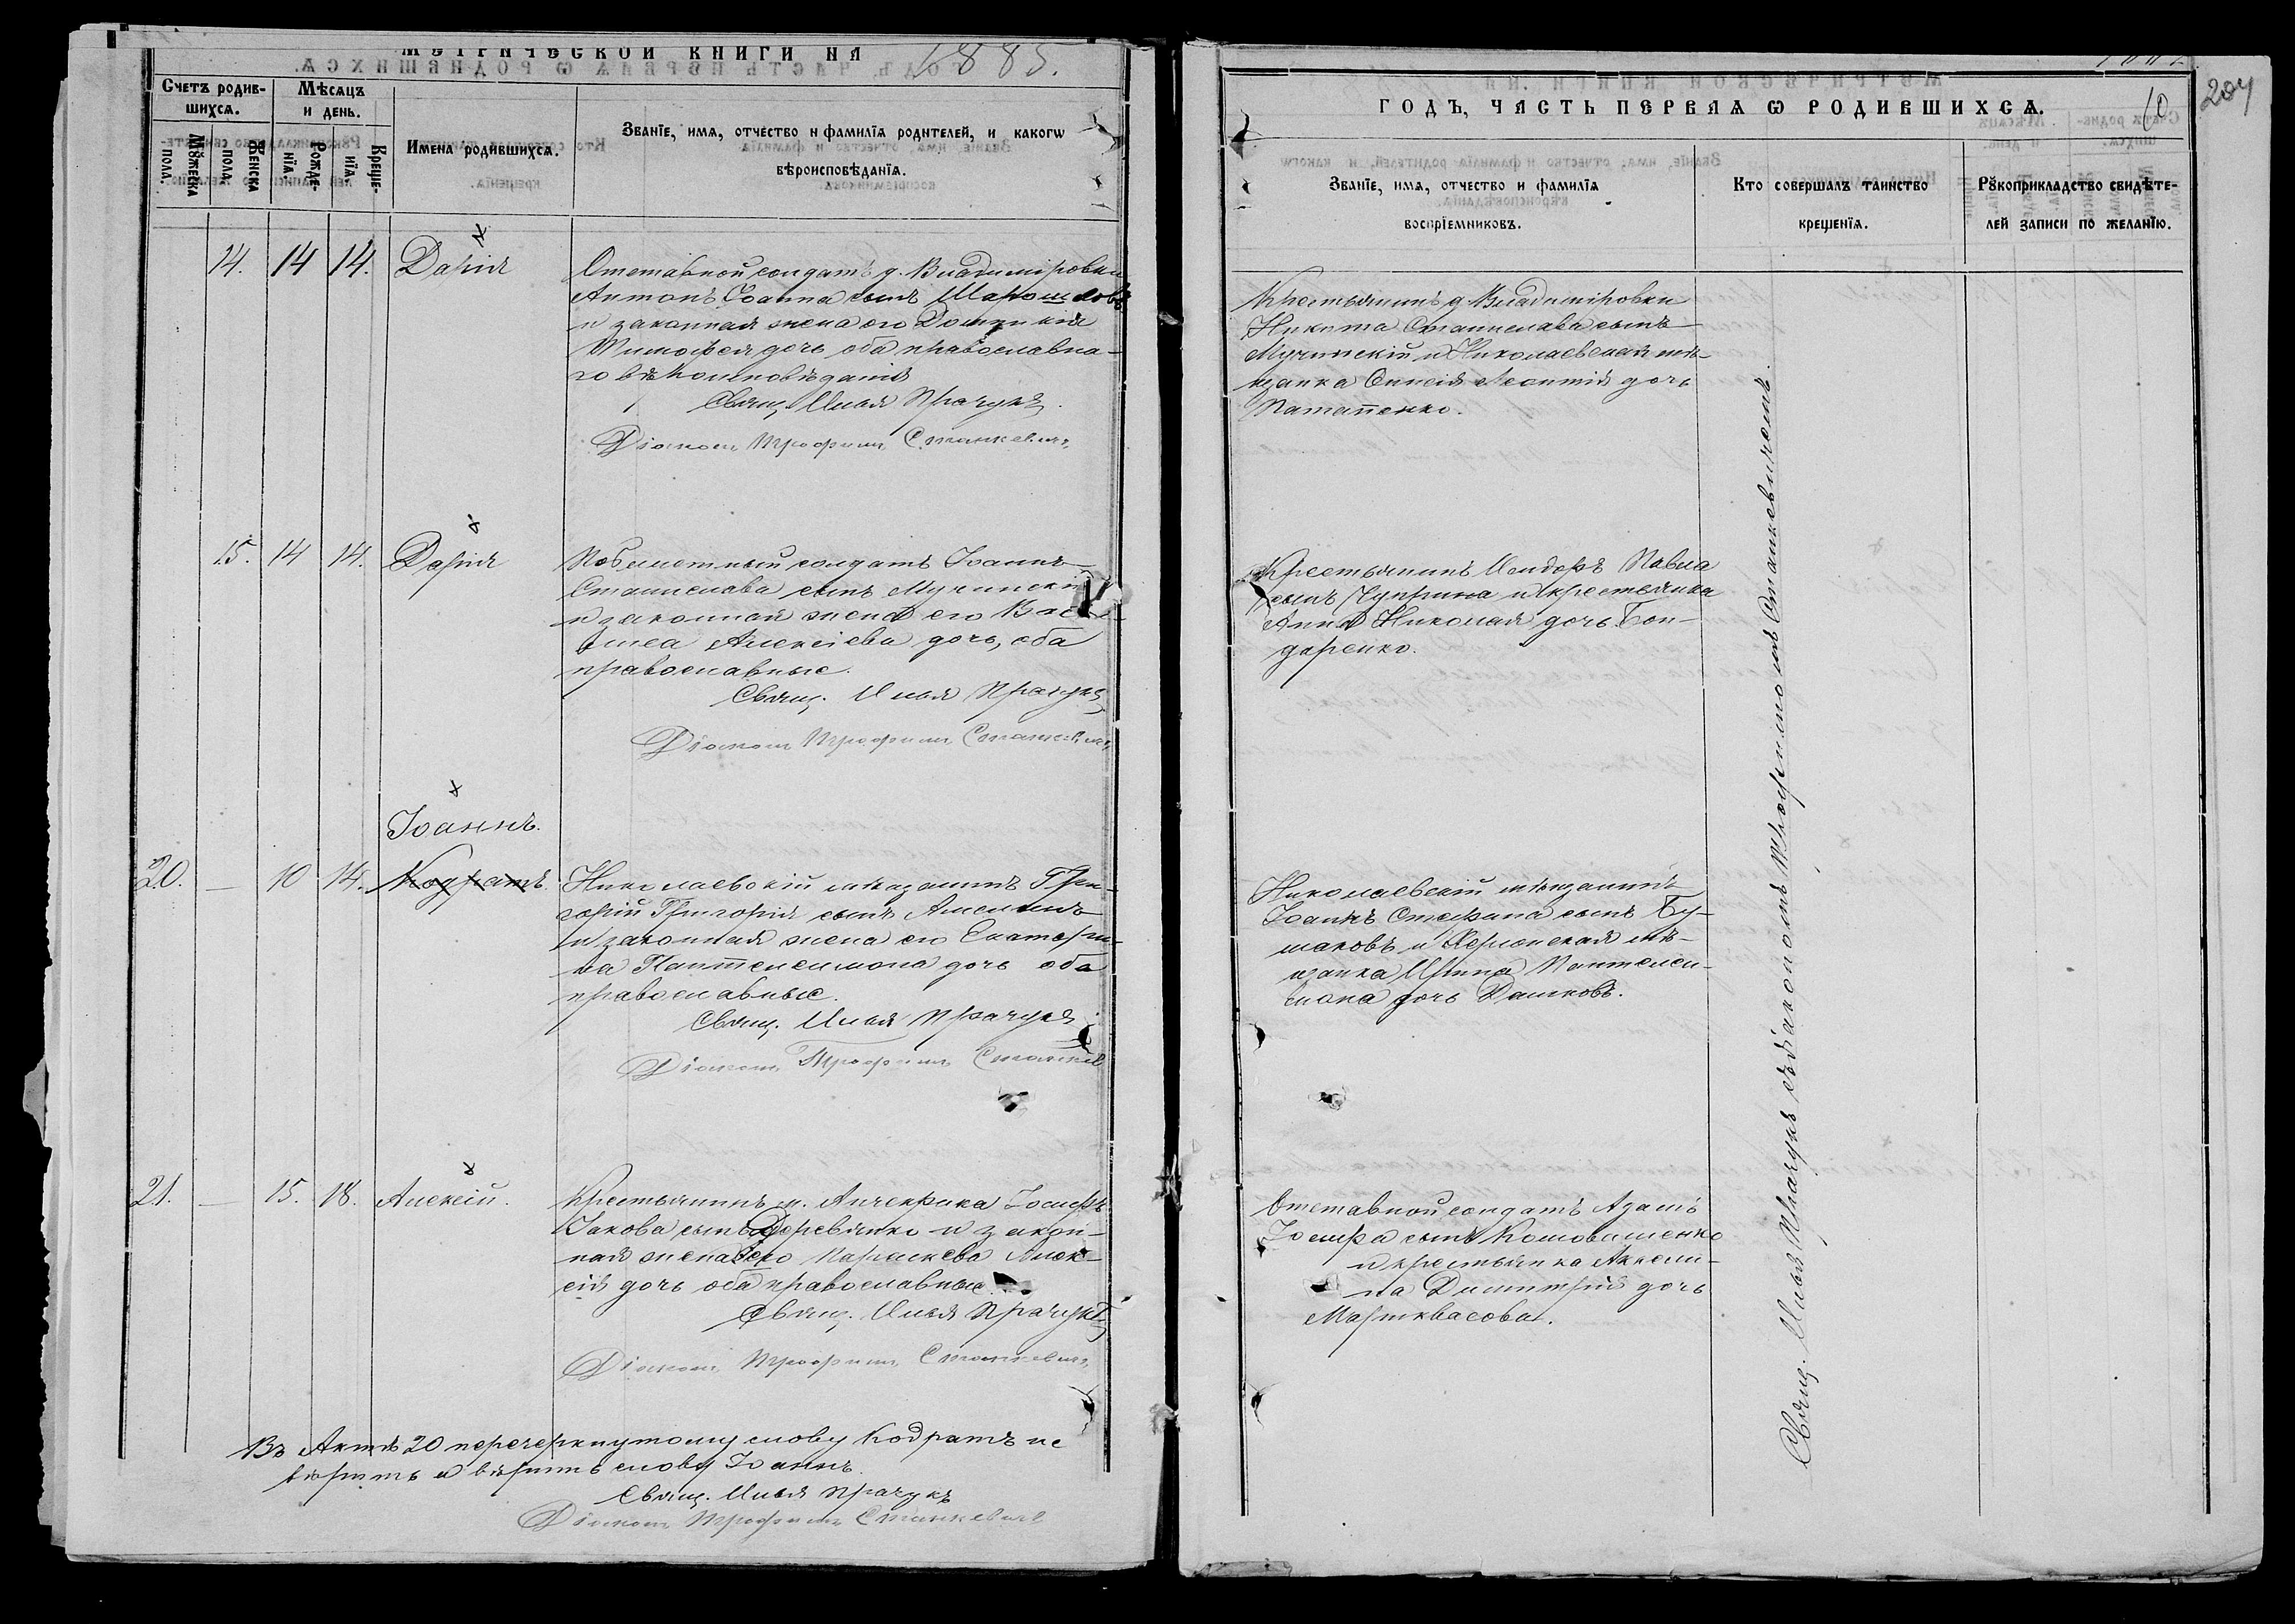 МЕТРИЧЕСКОЙ КНИГИ НА 1885.
Счетъ родив-
шихсѧ.
Мѣсѧцъ
и день.
Мꙋжеска
пола.
Женска
пола.
Рожде-
нїѧ.
Креще-
нїѧ.
Имена родившихсѧ.
Званїе, имѧ, отчество и фамилїѧ родителей, и какогѡ
вѣроисповѣданїѧ.
14. 14 14. Дарія
Отставной солдатъ д. Владиміровки
Антонъ Іоанна сынъ
и законная жена его Домникія
Тимофея дочь оба православна-
го вѣроисповѣданія
Свящ. Илья Прачукъ.
Діаконъ Трофимъ Станкевичъ
15. 14 14. Дарія
Побилетный солдатъ Іоаннъ
Станислава сынъ Мучинскій
и законная жена его Васс-
Алексіева дочь, оба
православные.
Свящ. Илья Прачукъ
Діаконъ Трофимъ Станкевичъ
Іоаннъ.
20. — 10 14. Кодратъ.
Николаевскій мѣщанинъ Гри-
горій Григорія сынъ Амелинъ
и законная жена его Екатери-
на Пантелеимона дочь оба
православные.
Свящ. Илья Прачукъ
Діаконъ Трофимъ Станкев
21. — 15. 18. Алексій.
Крестьянинъ м. Анчекрака Іосифъ
Іакова сынъ Деревянко и закон-
ная жена его Параскева Алек-
сія дочь оба православные.
Свящ. Илья Прачукъ
Діаконъ Трофимъ Станкевичъ
Въ Актѣ 20 перечеркнутому слову Кодратъ не
вѣрить а вѣрить слову Іоаннъ.
Свящ. Илья Прачукъ
Діаконъ Трофимъ Станкевичъ
ГОДЪ, ЧАСТЬ ПЕРВАѦ Ѡ РОДИВШИХСѦ.
10
204
Званїе, имѧ, отчество и фамилїѧ
воспрїемниковъ.
Кто совершалъ таинство
крещенїѧ.
Рꙋкоприкладство свидѣте-
лей записи по желанїю.
Крестьянинъ д. Владиміровки
Никита Станислава сынъ
Мучинскій и Николаевская мѣ-
щанка Онисія Леонтія дочь
Потапенко.
Крестьянинъ Исидоръ Павла
сынъ Чуприна и крестьянка
Анна Николая дочь Бон-
даренко.
Николаевскій мѣщанинъ
Іоаннъ Стефана сынъ Бу-
шаковъ и Херсонская мѣ-
щанка Ирина Пантелеи-
мона дочь Дашковъ.
Отставной солдатъ Адамъ
Іосифа сынъ Коновашенко
и крестьянка Акели-
на Димитрія дочь
Мариквасова.
Свящ. Илья Прачукъ съ діакономъ Трофимомъ Станкевичемъ.